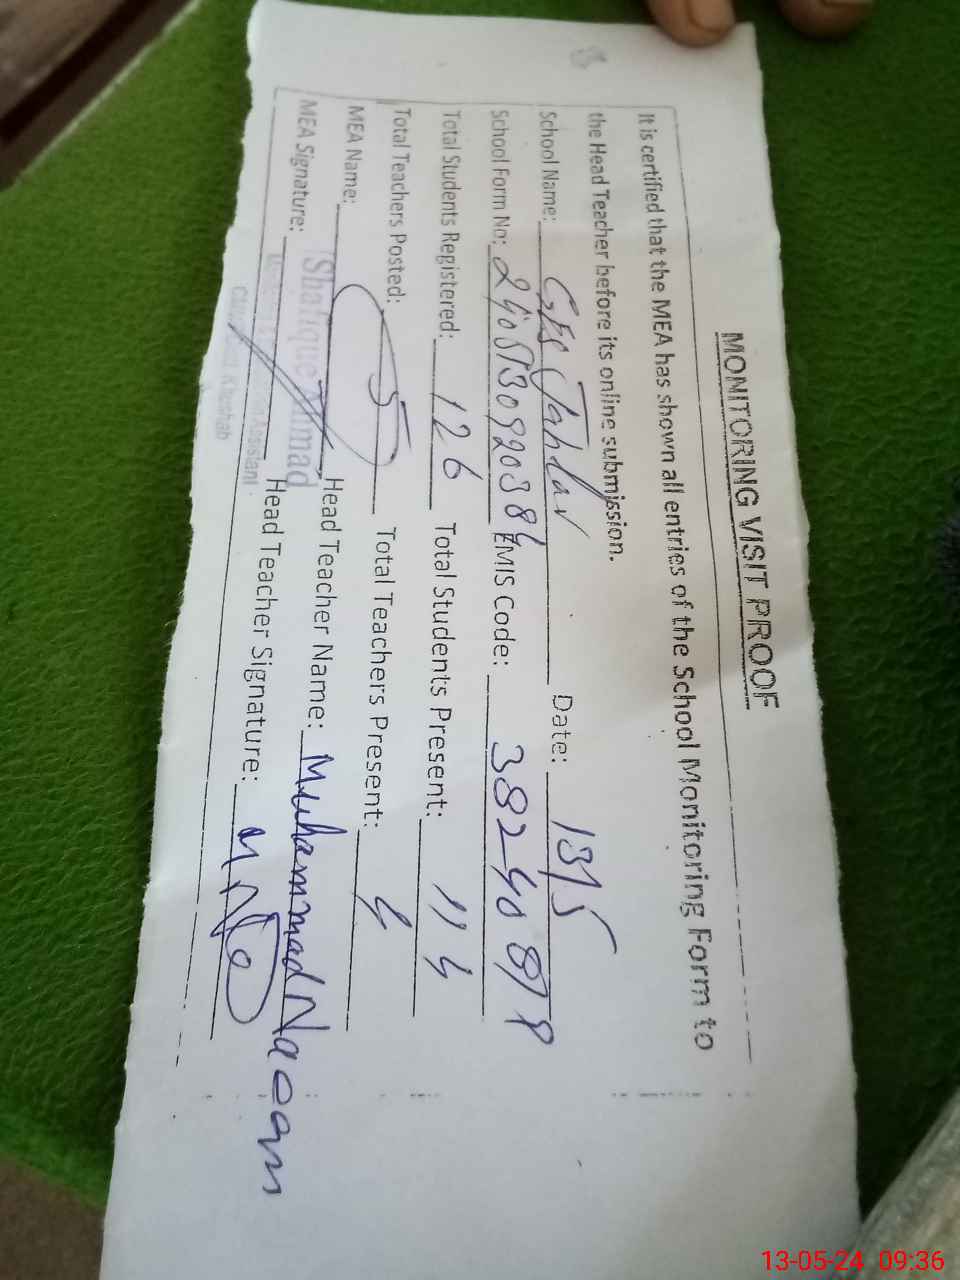 MONITORING VISIT PROOF
It is certified that the MEA has shown all entries of the School Monitoring Form to
the Head Teacher before its online submission.
School Name: GES Jahlar Date: 13/5
School Form No: EMIS Code: 38240878
Total Students Registered: 126 Total Students Present: 114
Total Teachers Posted: 5 Total Teachers Present: 4
MEA Name: Head Teacher Name: Muhammad Naeem
MEA Signature: Head Teacher Signature:
Shafique Ahmad
Assistant
Khushab
13-05-24 09:36